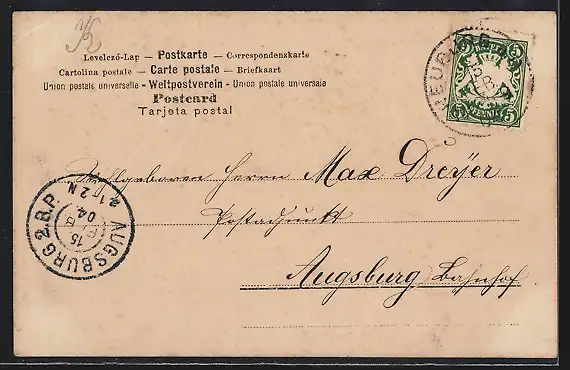 Levelező-Lap — Postkarte — Correspondenzkarte
Cartolina postale — Carte postale — Briefkaart
Union postale universelle - Weltpostverein - Union postale universale
Postcard
Tarjeta postal
5 5
PFENNIG
5 5
Wohlgeboren Herrn Max Dreÿer
Postadjunkt
Augsburg Bahnhof
AUGSBURG 2. B.P.
15
FEB
04
1-2 N